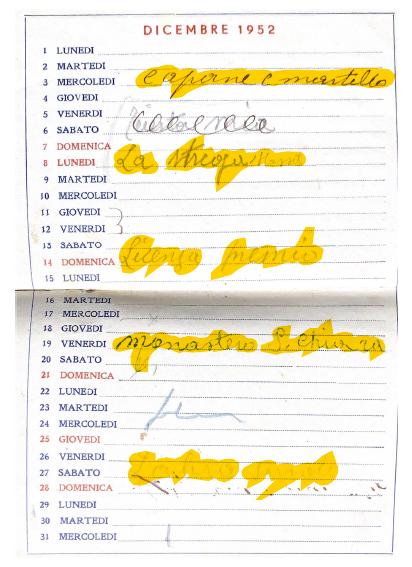 DICEMBRE 1952
1 LUNEDI
2 MARTEDI
3 MERCOLEDI Caporne e martello
4 GIOVEDI
5 VENERDI
6 SABATO
7 DOMENICA
8 LUNEDI La strega
9 MARTEDI
10 MERCOLEDI
11 GIOVEDI
12 VENERDI
13 SABATO
14 DOMENICA Licenza premio
15 LUNEDI
16 MARTEDI
17 MERCOLEDI
18 GIOVEDI
19 VENERDI monastero S. Chiara
20 SABATO
21 DOMENICA
22 LUNEDI
23 MARTEDI
24 MERCOLEDI
25 GIOVEDI
26 VENERDI
27 SABATO
28 DOMENICA
29 LUNEDI
30 MARTEDI
31 MERCOLEDI